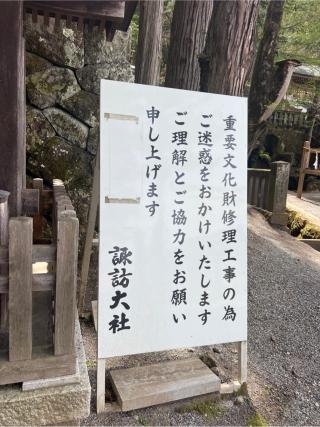 重要文化財修理工事の為
ご迷惑をおかけいたします
ご理解とご協力をお願い
申し上げます
諏訪大社